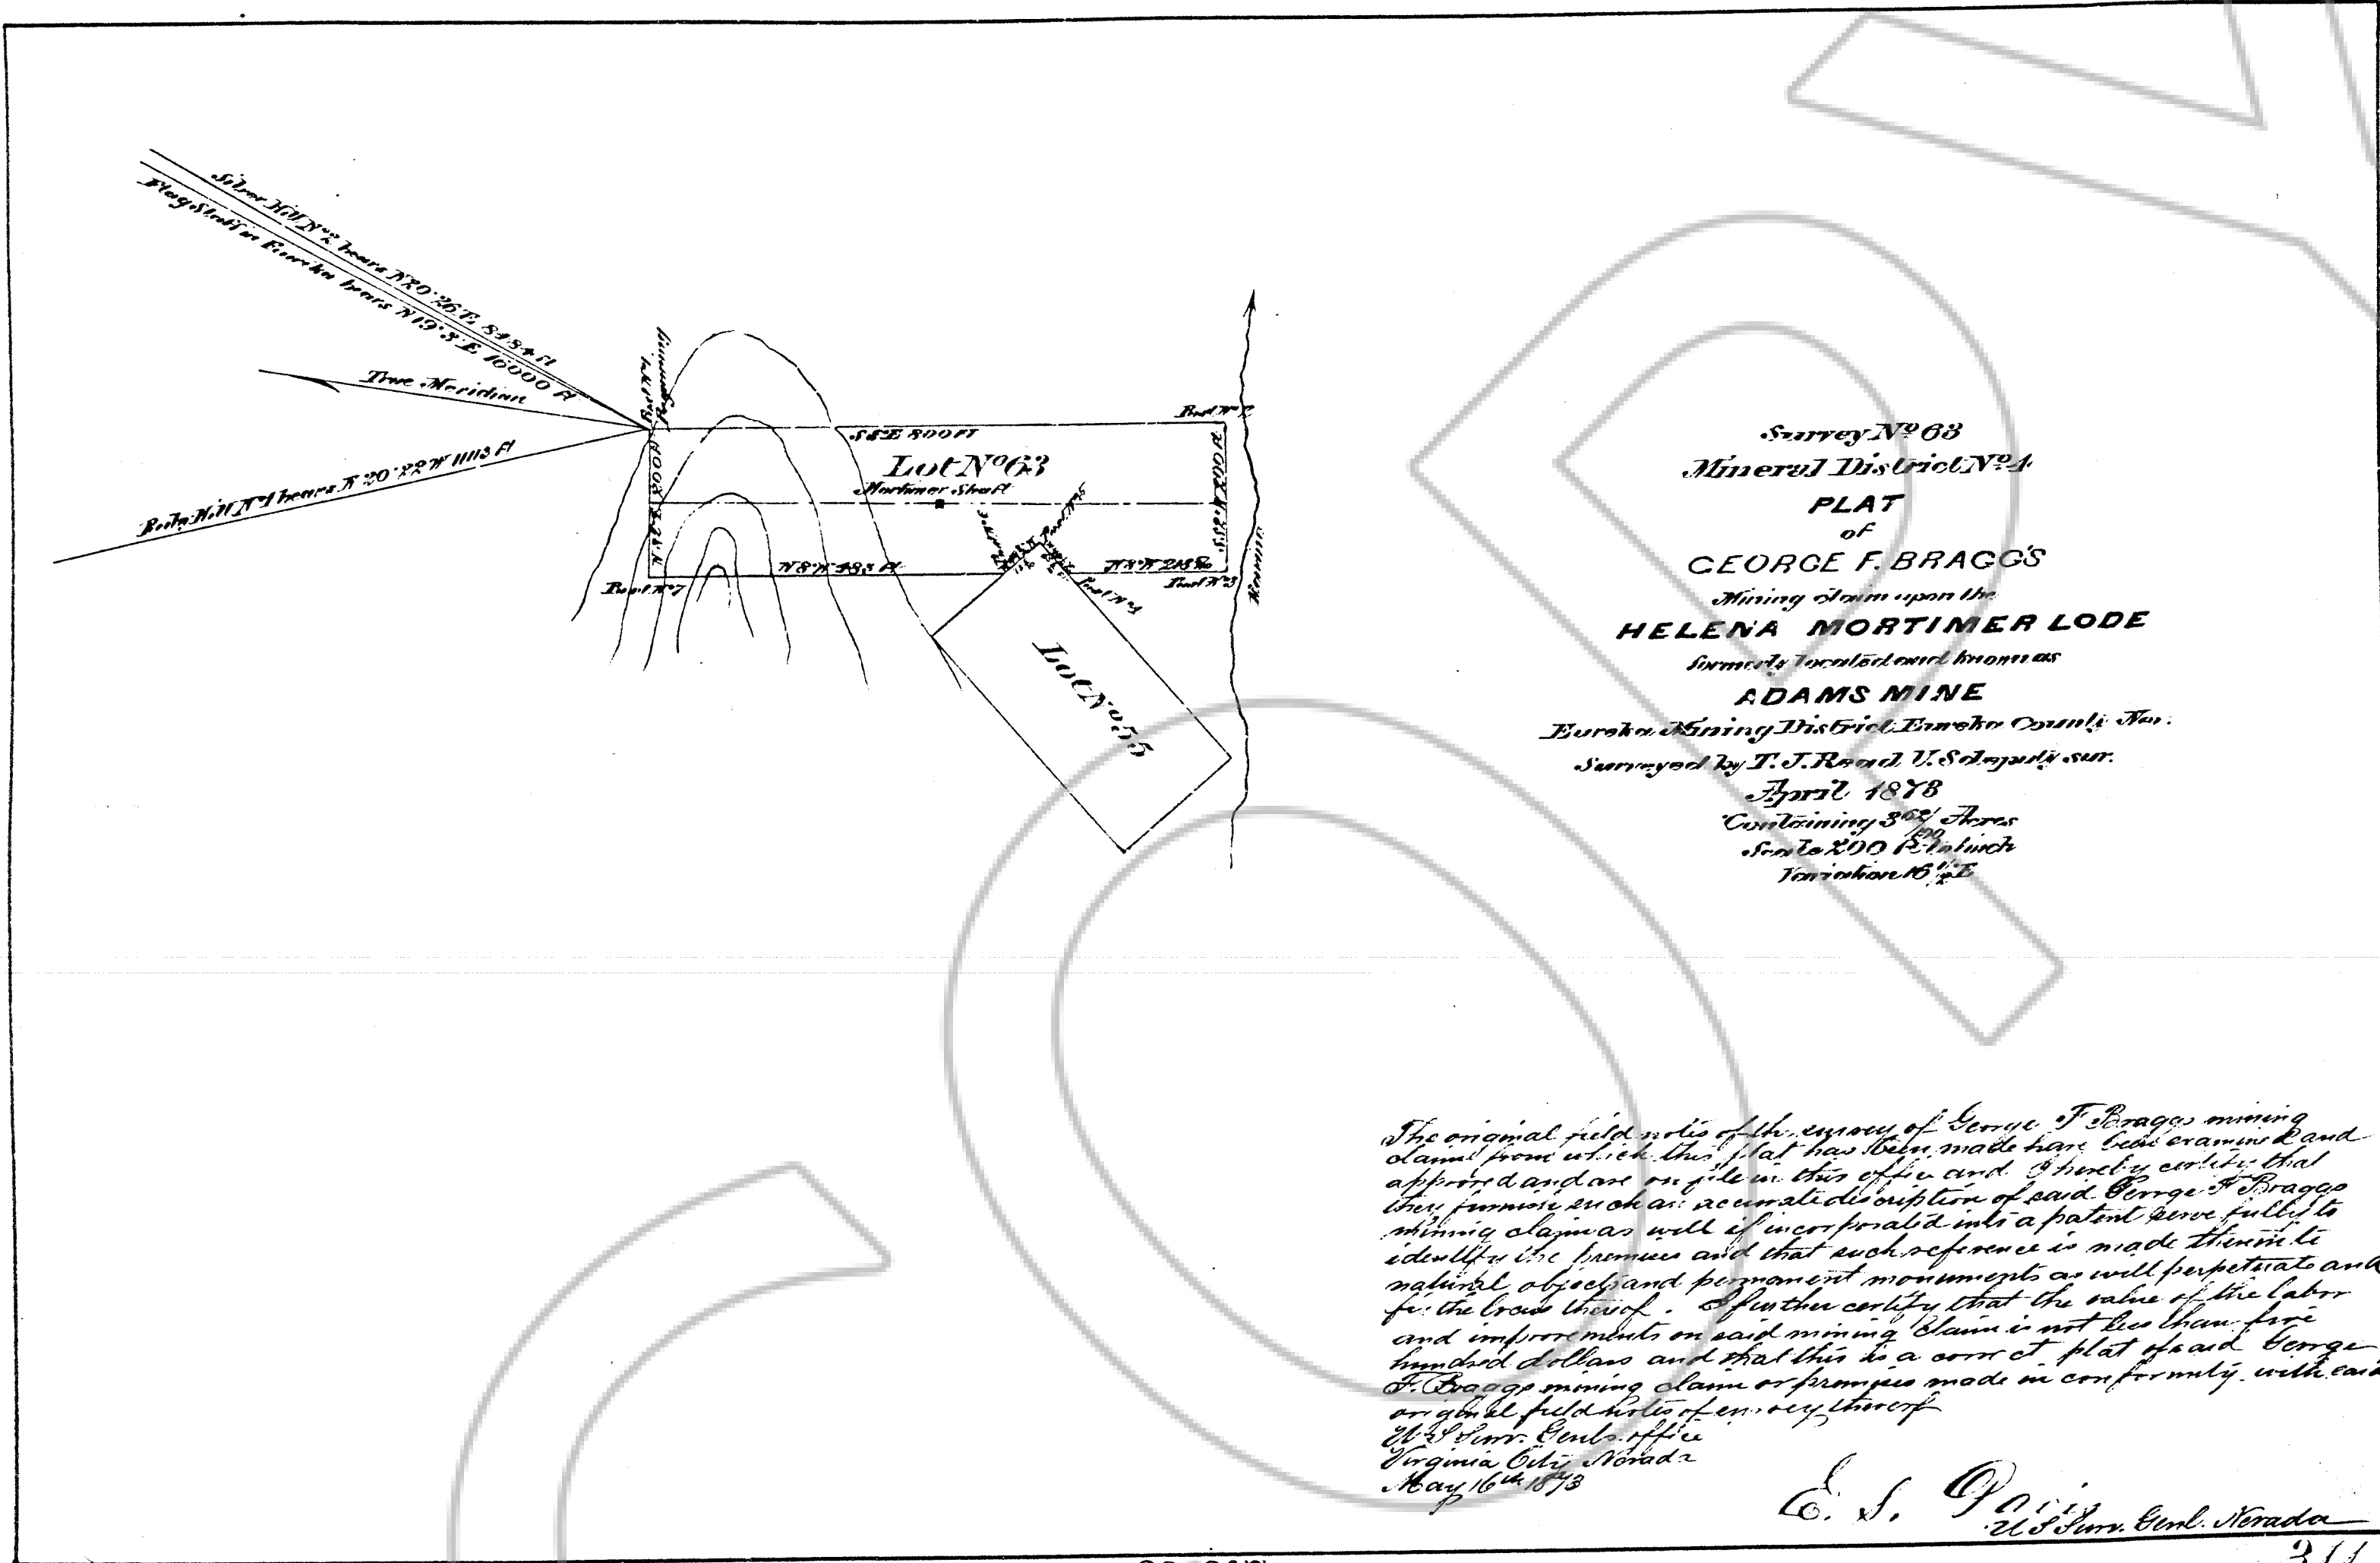 Silver Hill Nº2 bears N20°26'E 8484 ft
Flag Staff in Eureka bears N19°3'E 10000 ft
True Meridian
Ruby Hill Nº1 bears N 20°22'W 11113 ft
Post Nº2
S 8° E 800 ft
Lot Nº 63
Mortimer Shaft
N 8° W 483 ft
Post Nº7
Post Nº4
Post Nº3
Lot Nº 55
Survey Nº 63
Mineral District Nº 4
PLAT
of
GEORGE F. BRAGG'S
Mining claim upon the
HELENA MORTIMER LODE
formerly located and known as
ADAMS MINE
Eureka Mining District Eureka County Nev.
Surveyed by T. J. Read U. S deputy sur.
April 1873
Containing 3 62/100 Acres
Scale 200 ft to inch
Variation 16 1/2° E
The original field notes of the survey of George F Braggs mining
claim from which this plat has been made have been examined and
approved and are on file in this office and I hereby certify that
they furnish such an accurate description of said George F Braggs
mining claim as will if incorporated into a patent serve fully to
identify the premises and that such reference is made therein to
natural objects and permanent monuments as will perpetuate and
fix the locus thereof. I further certify that the value of the labor
and improvements on said mining claim is not less than five
hundred dollars and that this is a correct plat of said George
F. Braggs mining claim or premises made in conformity with said
original field notes of survey thereof
U S Surv. Genls. office
Virginia City Nevada
May 16th 1873
E. S. Davis
U S Surv. Genl. Nevada
COPY